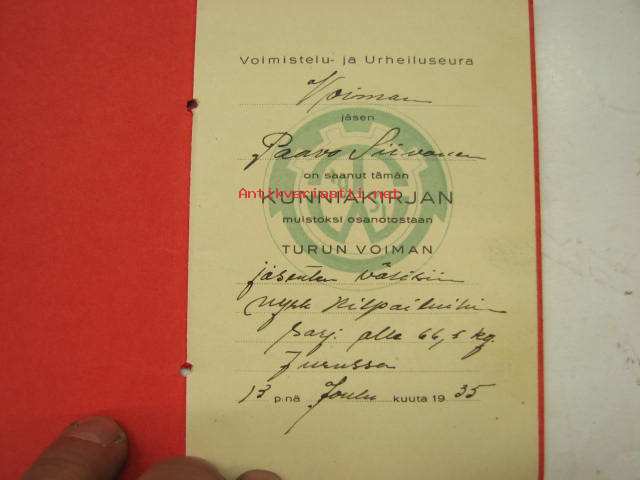 Voimistelu- ja Urheiluseura
Voiman
jäsen
Paavo Siivonen
on saanut tämän
Antikvariaatti.net
KUNNIAKIRJAN
muistoksi osanotostaan
TURUN VOIMAN
jäsenten välisiin
nyrk kilpailuihin
Sarj. alle 66,5 kg.
Turussa
13 p:nä Joulu kuuta 1935